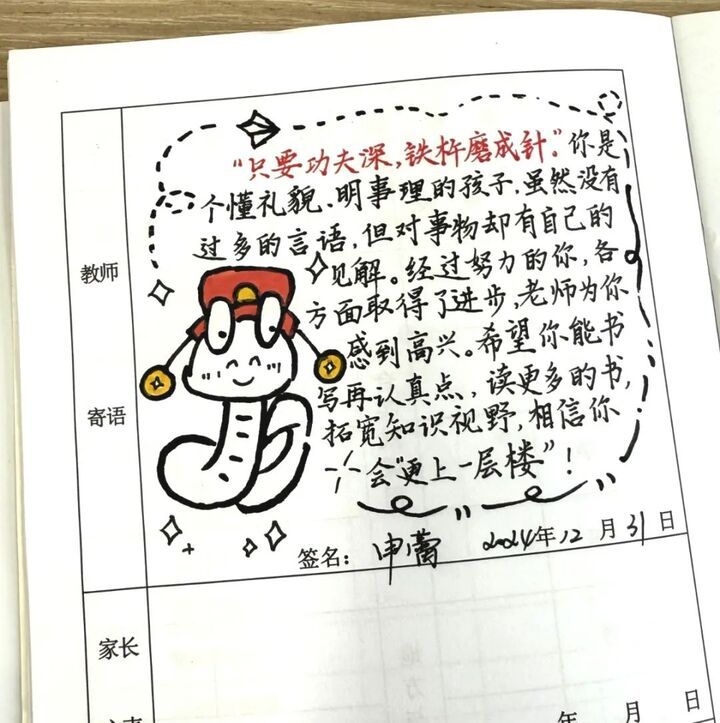 “只要功夫深,铁杵磨成针。”你是
个懂礼貌、明事理的孩子,虽然没有
过多的言语,但对事物却有自己的
见解。经过努力的你,各
方面取得了进步,老师为你
感到高兴。希望你能书
写再认真点,读更多的书,
拓宽知识视野,相信你
会“更上一层楼”!
教师
寄语
签名: 申蕾 2024年12月31日
家长
年 月 日